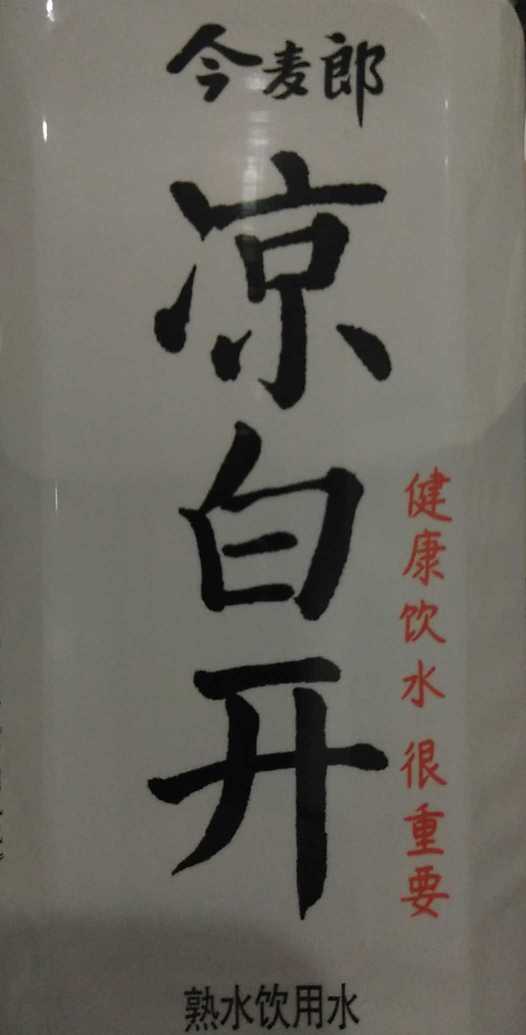 今麦郎
凉白开
健康饮水 很重要
熟水饮用水